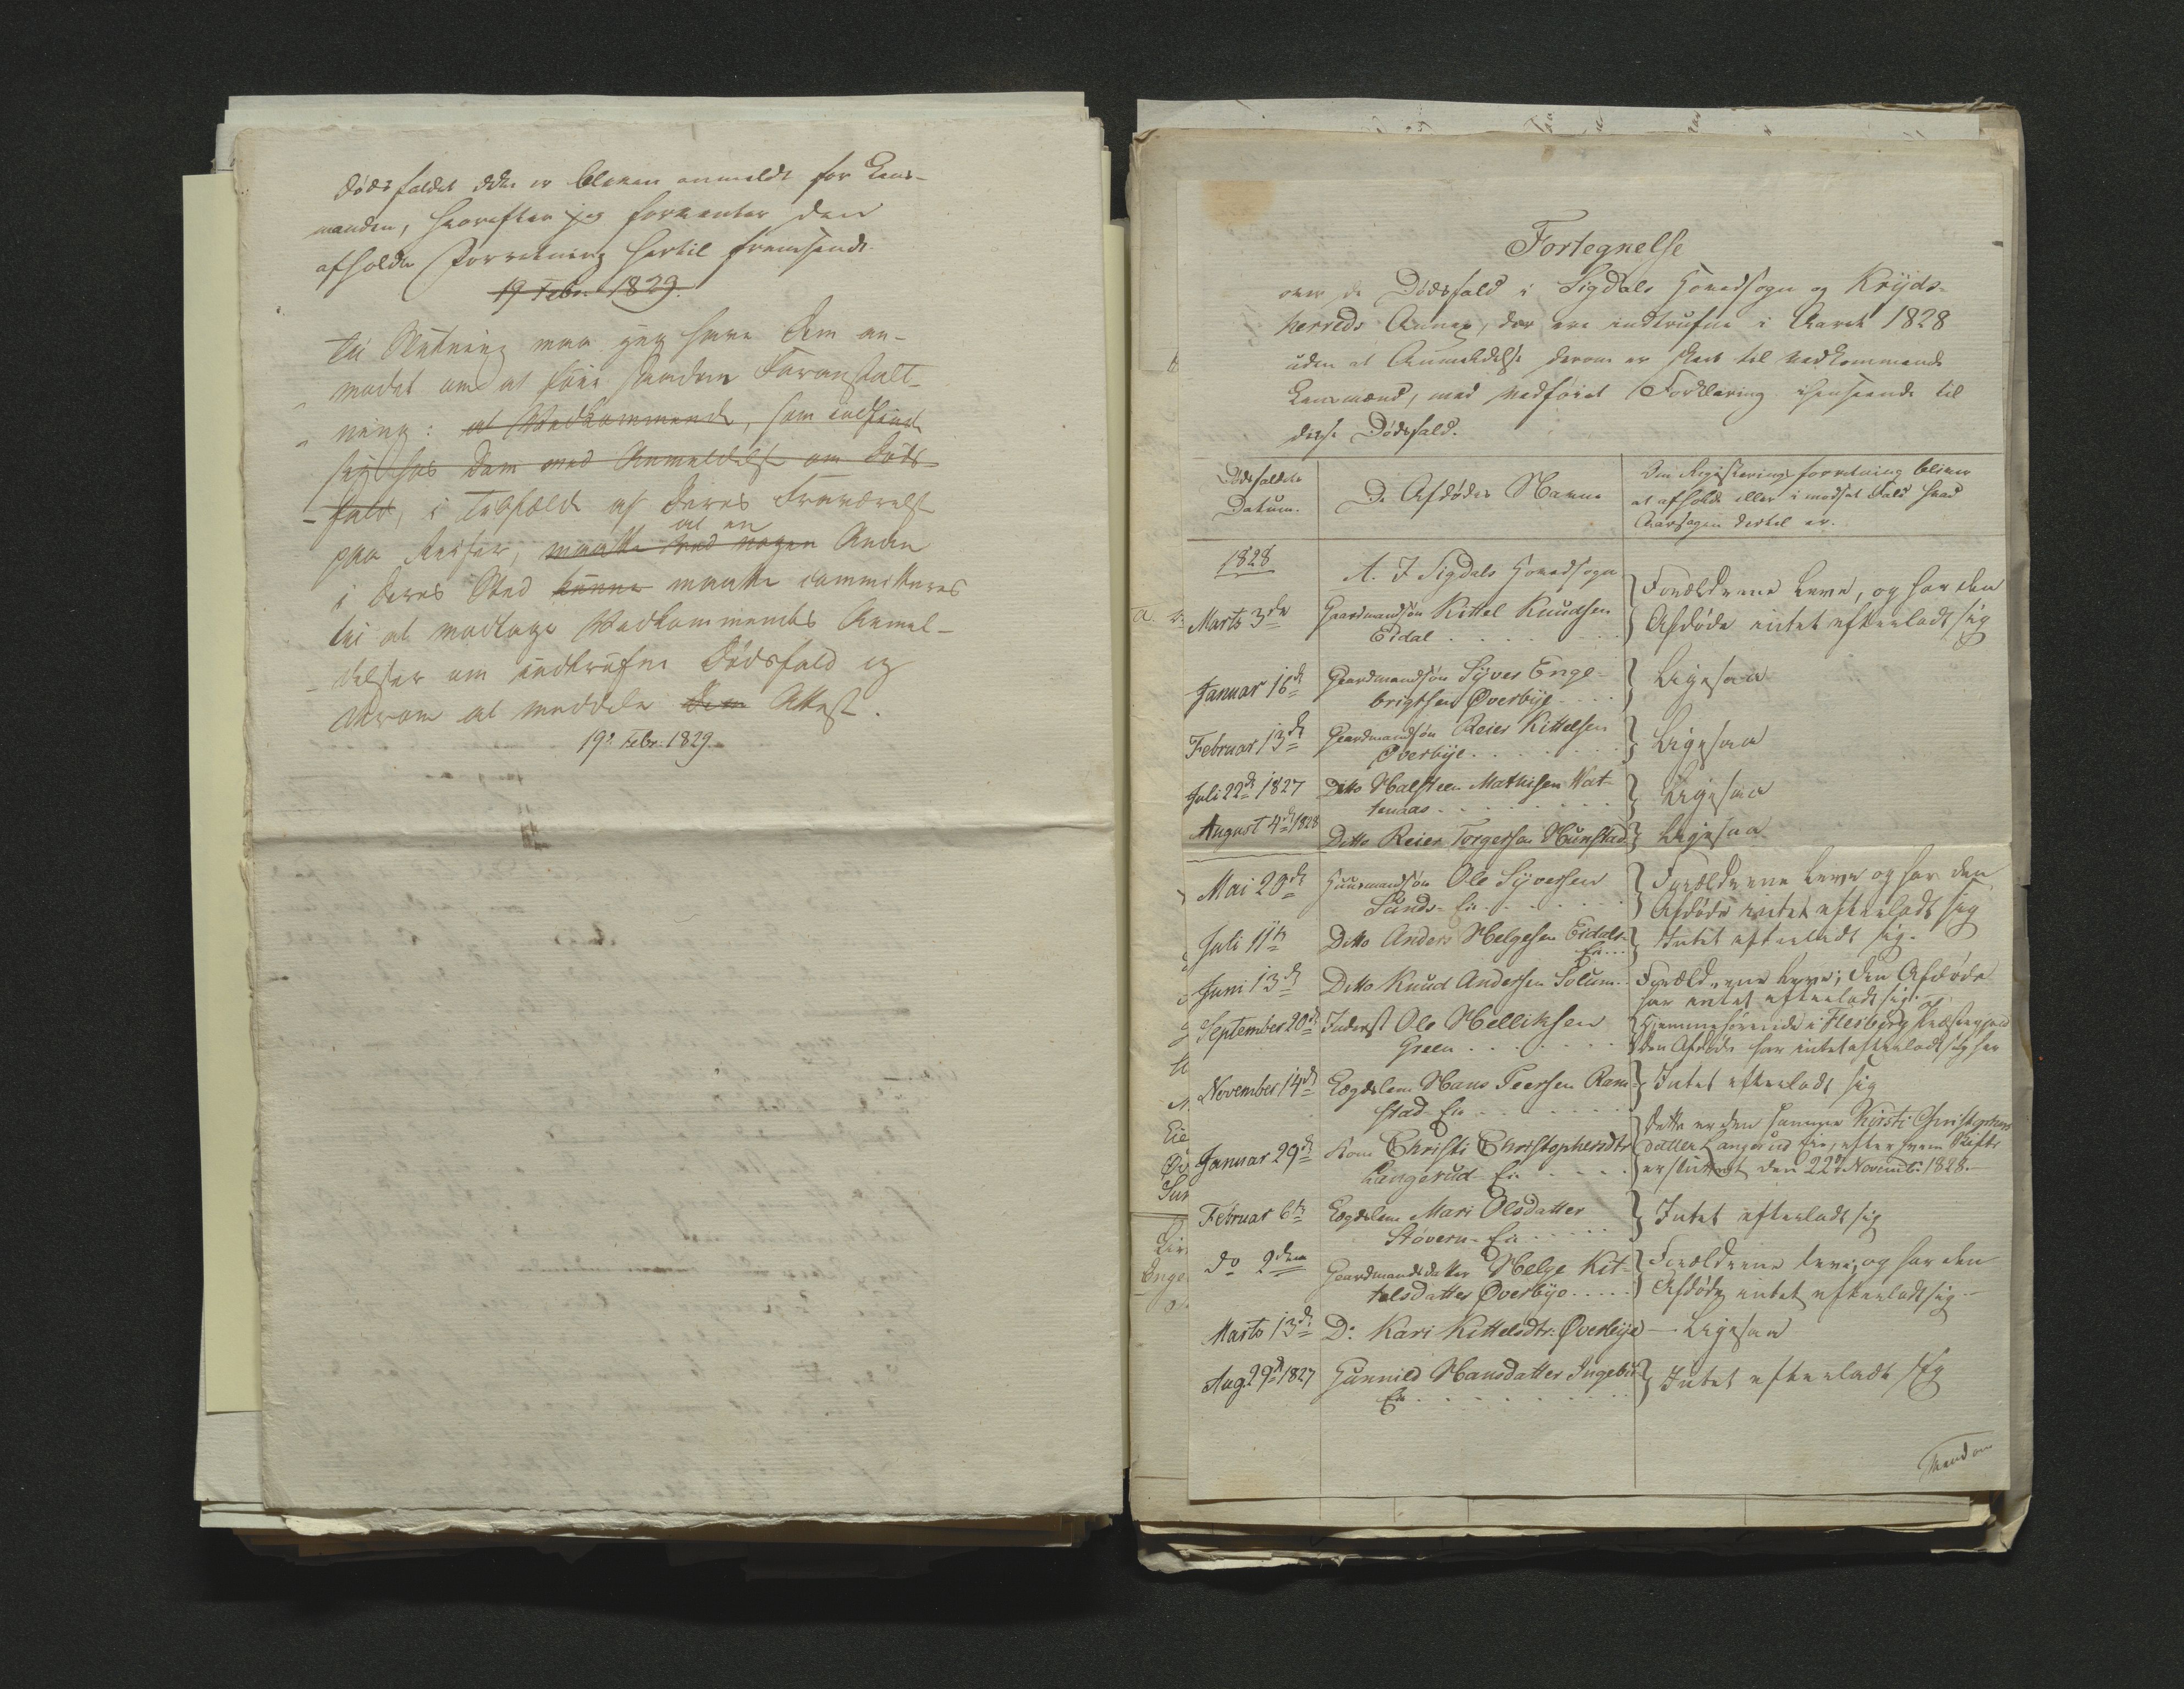 Dødsfaldet ikke er bleven anmeldt for Lens-
manden, hvorefter jeg forventer den
afholdte Forretning hertil fremsendt.
19 Febr. 1829.
Til Slutning maa jeg have Dem an-
modet om at føie saadan Foranstalt-
ning: at Vedkommende, som indfinde
sig hos Dem med Anmeldelse om Døds-
fald, i Tilfælde af Deres Fraværelse
paa Reiser, maatte med nogen Anden
at en
i Deres Sted kunne maatte committeres
til at modtage Vedkommendes Anmel-
delser om indtrufne Dødsfald og
derom at meddele dem Attest.
19d. Febr. 1829.
Fortegnelse
over de Dødsfald i Sigdals Hovedsogn og Krÿds-
herreds Annex, der ere indtrufne i Aaret 1828
uden at Anmeldelse derom er skeet til vedkommende
Lensmænd, med vedføiet Forklaring ihenseende til
disse Dødsfald.
Dødsfaldets
Datum.
De Afdødes Navne
Om Registreringsforretning bliver
at afholde eller i modsat Fald hvad
Aarsagen dertil er.
1828
A. I Sigdals Hovedsogn
Marts 3de Gaardmandsøn Kittel Knudsen
Eidal . . . . . .
Forældrene leve, og har den
Afdøde intet efterladt sig
Januar 16de Gaardmandsøn Syver Enge-
brigtsen Øverbÿe . . .
Ligesaa
Februar 13de Gaardmandsøn Reier Kittelsen
Øverbÿe . . . . . .
Ligesaa
Juli 22de 1827 Ditto Halsteen Mathisen Vat-
tenaas . . . . . .
Ligesaa
August 4de 1828 Ditto Reier Torgersen Hunstad
Ligesaa
Mai 20de Huusmandsøn Ole Syversen
Lunds-Eie . . . . . .
Forældrene leve og har den
Afdøde intet efterladt sig
Juli 11te Ditto Anders Helgesen Eidals-
Eie . . .
Intet efterladt sig.
Juni 13de Ditto Knud Andersen Solum . .
Forældrene leve; den Afdøde
har intet efterladt sig.
September 20de Inderst Ole Helliksen
Green . . . . . .
Hjemmehørende i Flesberg Præstegjeld og
den Afdøde har intet efterladt sig her
November 14de Lægdslem Hans Peersen Ram-
stad-Eie . . . . . .
Intet efterladt sig
Januar 29de Kone Christi Christophersdtr
Langerud-Eie . . . .
Dette er den samme Kirsti Christophers
datter Langerud Eie, efter hvem Skifte
er sluttet den 22de Novemb: 1828.-
Februar 6te Lægdslem Mari Olsdatter
Støvern-Eie . . . .
Intet efterladt sig
Do 9den Gaardmandsdatter Helge Kit-
telsdatter Øverbÿe . . . . .
Forældrene leve, og har den
Afdøde intet efterladt sig.-
Marts 13de D: Kari Kittelsdtr: Øverbÿe — Ligesaa
Aug. 29de 1827 Gunnild Hansdatter
Eie . . . . . .
Intet efterladt sig